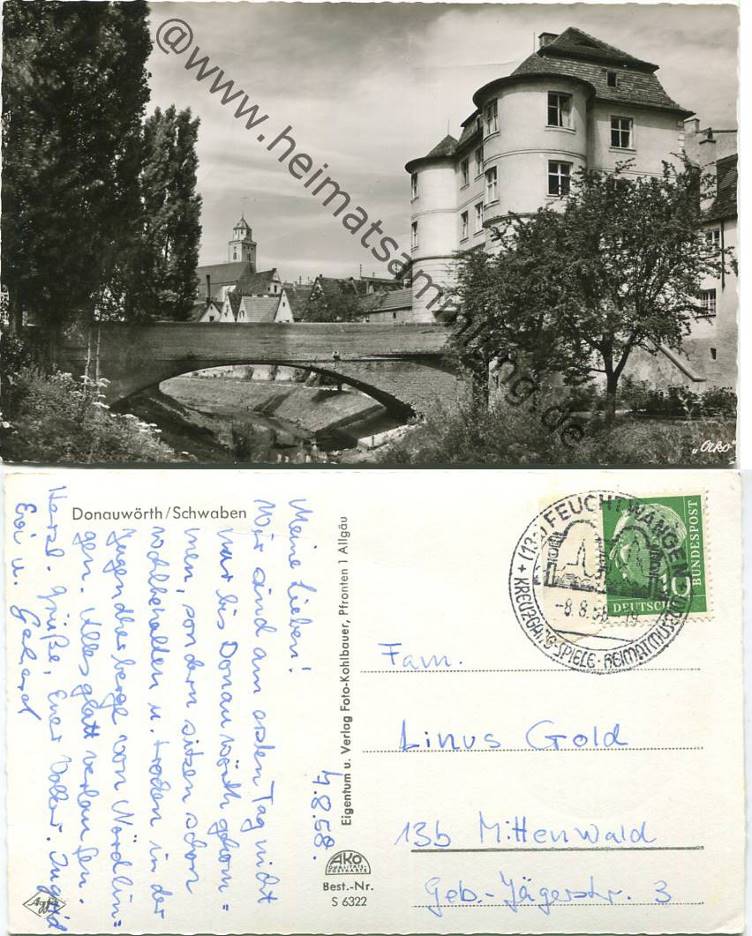 @www.heimatsammlung.de
„Orko"
Donauwörth/Schwaben
4.8.58.
Meine Lieben!
Wir sind am ersten Tag nicht
nur bis Donauwörth gekom=
men, sondern sitzen schon
wohlbehalten u. trocken in der
Jugendherberge von Nördlin=
gen. Alles glatt verlaufen.
Herzl. Grüße, Euer Volker. Ingrid
Evi u. Gerhard
Eigentum u. Verlag Foto-Kohlbauer, Pfronten 1 Allgäu
AKO
QUALITÄTS-
POSTKARTE
Best.-Nr.
S 6322
Agfa
(13a) FEUCHTWANGEN
-8.8.58-19
+ KREUZGANG-SPIELE · HEIMATMUSEUM
10
DEUTSCHE
BUNDESPOST
Fam.
Linus Gold
13b Mittenwald
Geb.-Jägerstr. 3